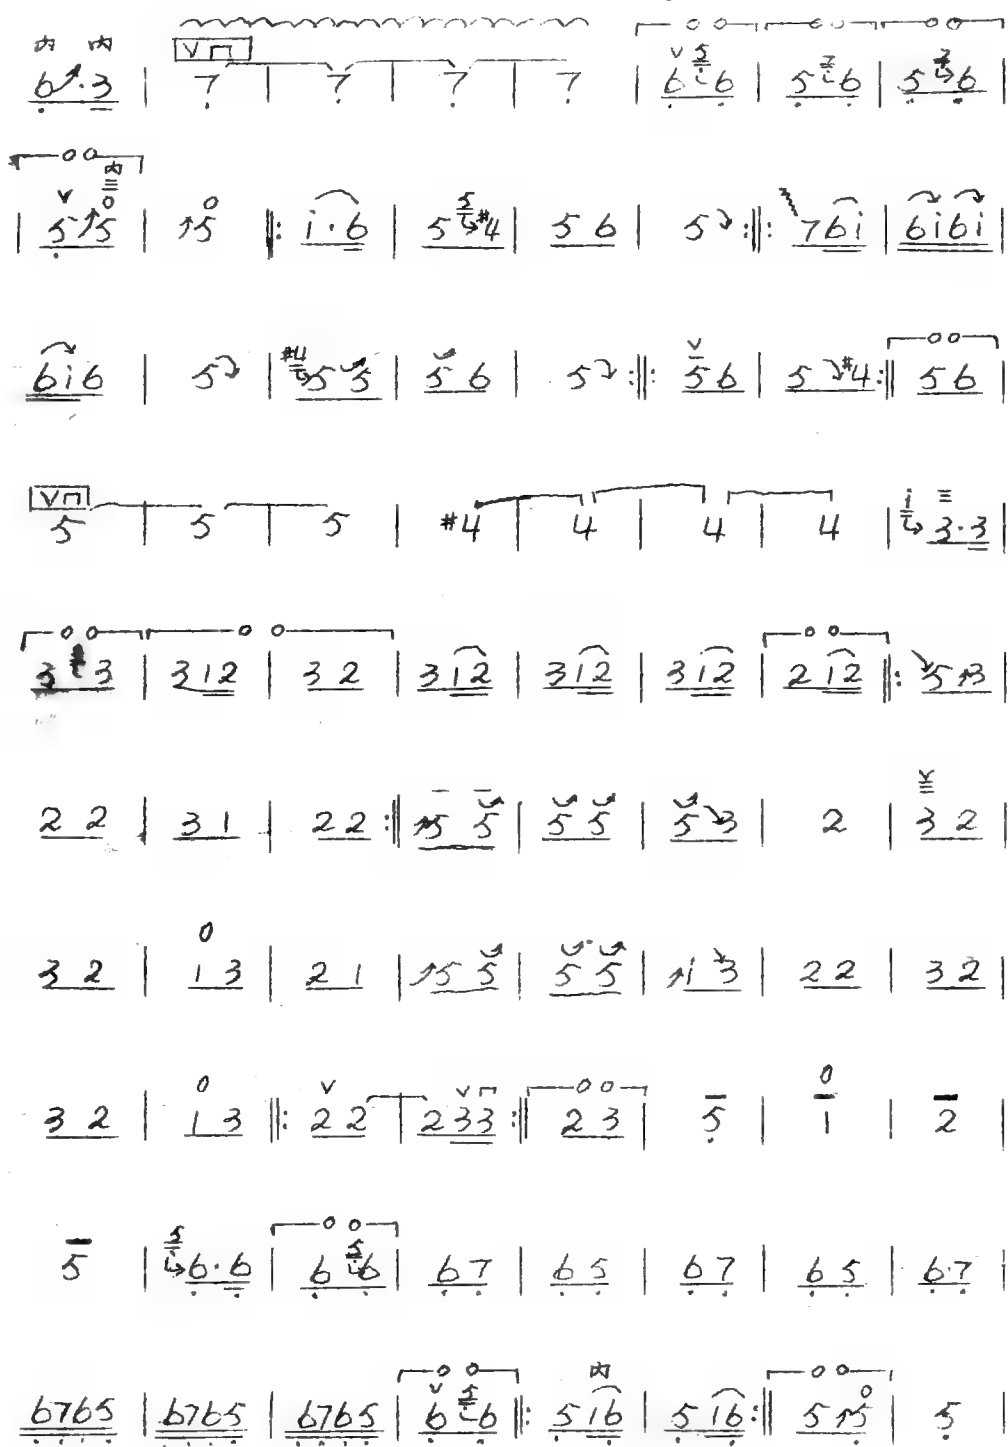 内 内 V 5 7 7
6·3 | 7 | 7 | 7 | 7 | 6 6 | 5 6 | 5 6 |
| 5 5 | 5 ‖: i·6 | 5 #4 | 5 6 | 5 :‖: 7 6 i | 6 i 6 i |
6 i 6 | 5 | #4 5 5 | 5 6 | 5 :‖: 5 6 | 5 #4 :‖ 5 6 |
5 | 5 | 5 | #4 | 4 | 4 | 4 | i 3·3 |
3 3 | 3 1 2 | 3 2 | 3 1 2 | 3 1 2 | 3 1 2 | 2 1 2 ‖: 5 3 |
2 2 | 3 1 | 2 2 :‖ 5 5 | 5 5 | 5 3 | 2 | 3 2 |
3 2 | 1 3 | 2 1 | 5 5 | 5 5 | i 3 | 2 2 | 3 2 |
3 2 | 1 3 ‖: 2 2 | 2 3 3 :‖ 2 3 | 5 | 1 | 2 |
5 | 5 6·6 | 6 5 6 | 6 7 | 6 5 | 6 7 | 6 5 | 6·7 |
6 7 6 5 | 6 7 6 5 | 6 7 6 5 | 6 5 6 ‖: 5 1 6 | 5 1 6 :‖ 5 5 | 5